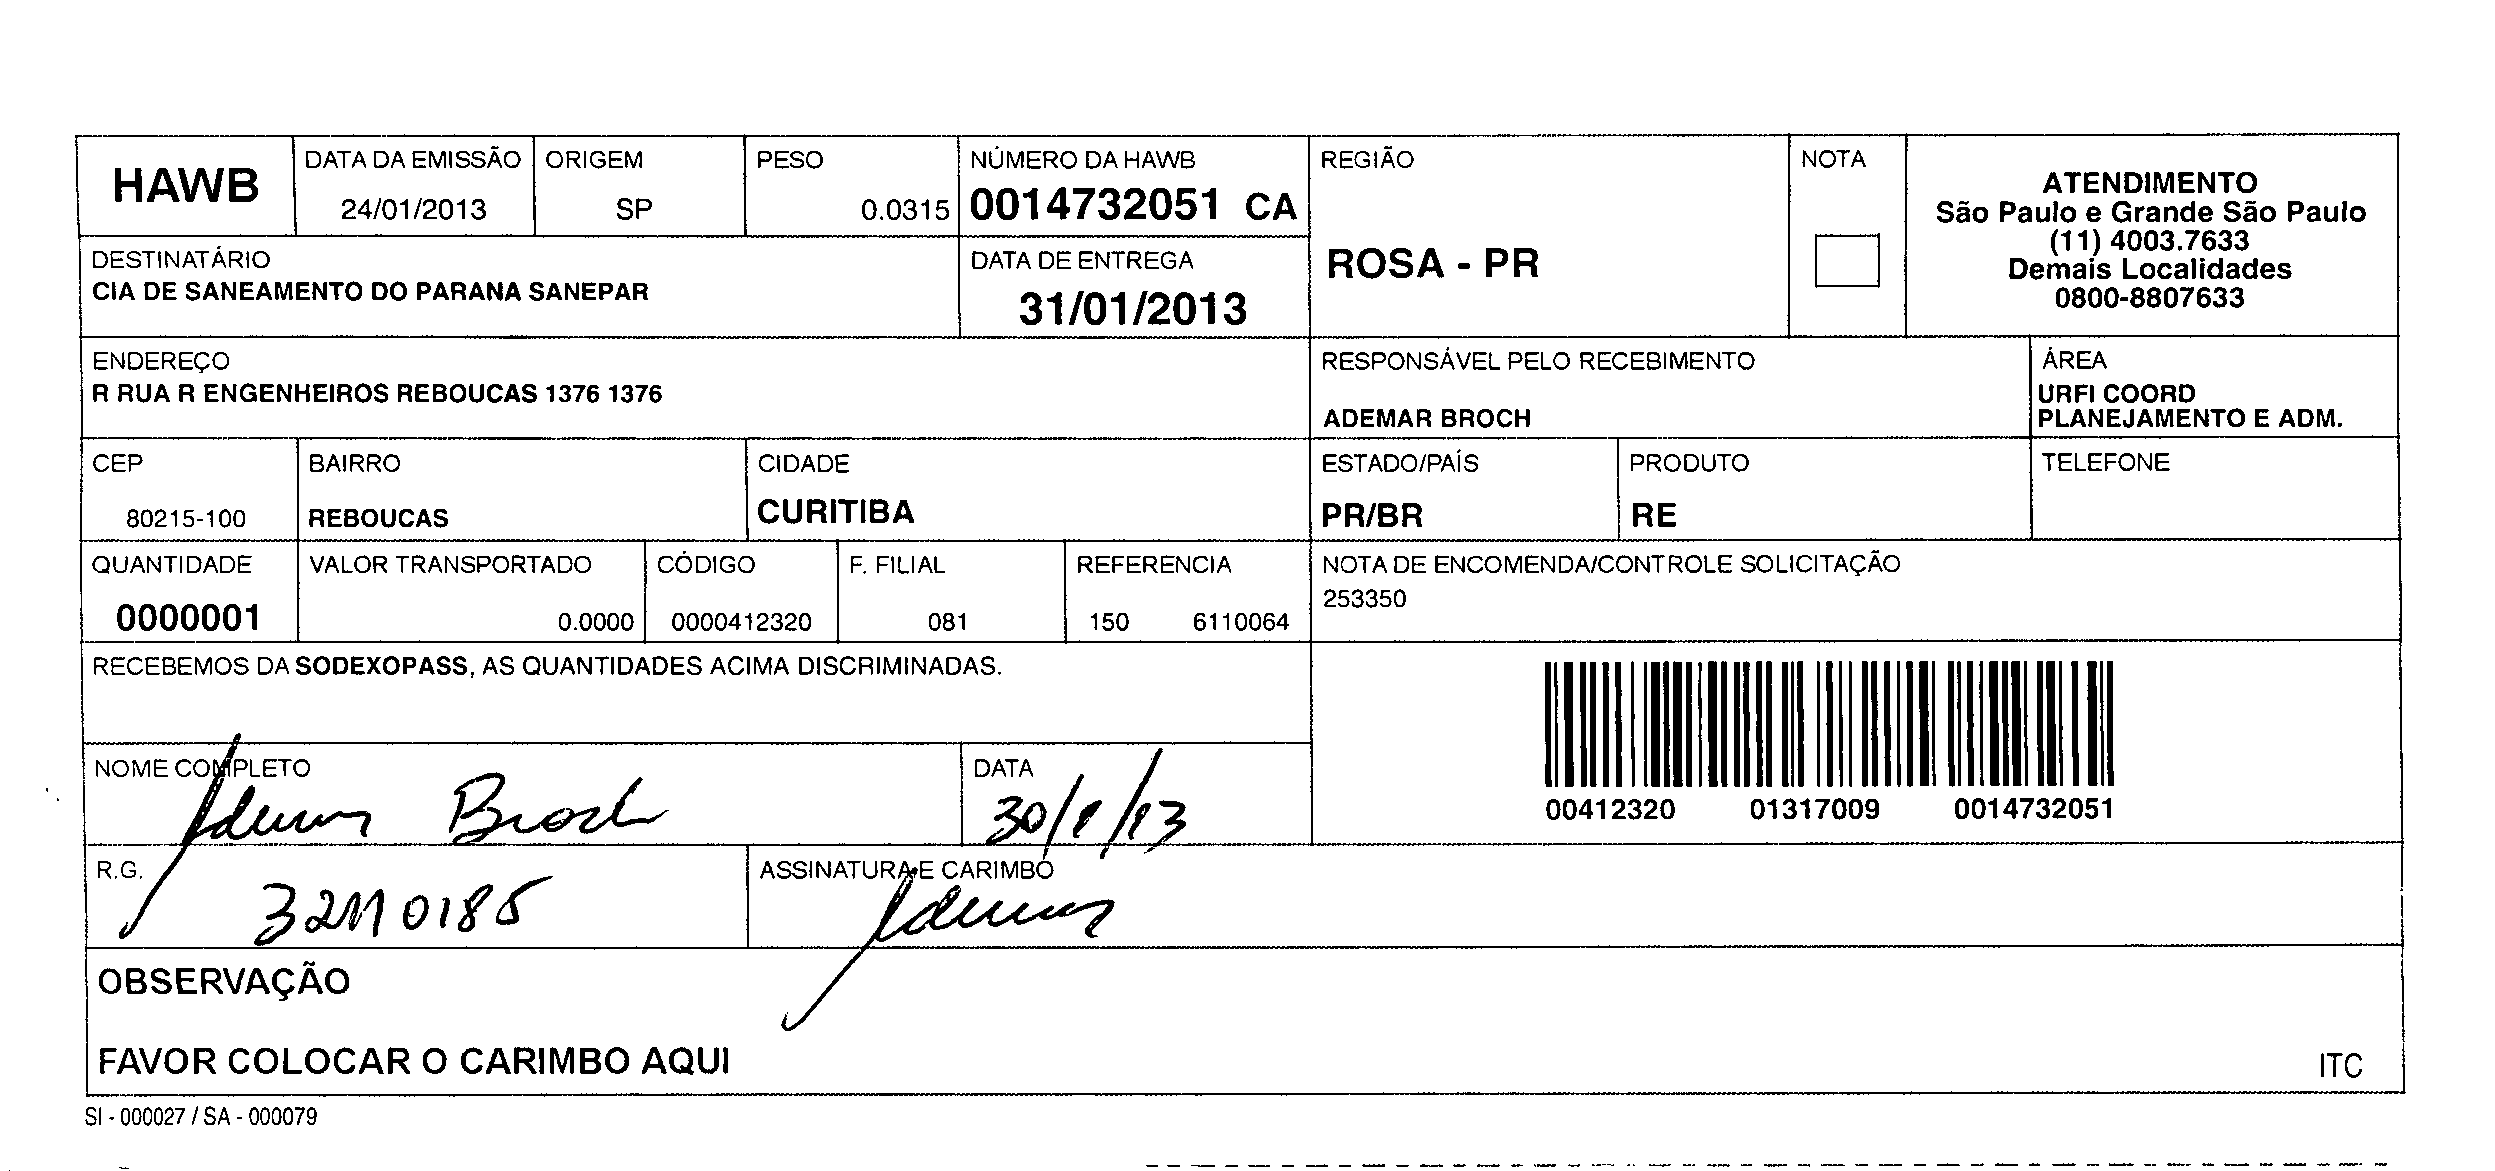 HAWB
DATA DA EMISSÃO
24/01/2013
ORIGEM
SP
PESO
0.0315
NÚMERO DA HAWB
0014732051 CA
REGIÃO
ROSA - PR
NOTA
ATENDIMENTO
São Paulo e Grande São Paulo
(11) 4003.7633
Demais Localidades
0800-8807633
DESTINATÁRIO
CIA DE SANEAMENTO DO PARANA SANEPAR
DATA DE ENTREGA
31/01/2013
ENDEREÇO
R RUA R ENGENHEIROS REBOUCAS 1376 1376
RESPONSÁVEL PELO RECEBIMENTO
ADEMAR BROCH
ÁREA
URFI COORD
PLANEJAMENTO E ADM.
CEP
80215-100
BAIRRO
REBOUCAS
CIDADE
CURITIBA
ESTADO/PAÍS
PR/BR
PRODUTO
RE
TELEFONE
QUANTIDADE
0000001
VALOR TRANSPORTADO
0.0000
CÓDIGO
0000412320
F. FILIAL
081
REFERENCIA
150 6110064
NOTA DE ENCOMENDA/CONTROLE SOLICITAÇÃO
253350
RECEBEMOS DA SODEXOPASS, AS QUANTIDADES ACIMA DISCRIMINADAS.
00412320 01317009 0014732051
NOME COMPLETO
Ademar Broch
DATA
30/1/13
R.G.
32110185
ASSINATURA E CARIMBO
Ademar
OBSERVAÇÃO
FAVOR COLOCAR O CARIMBO AQUI
ITC
SI - 000027 / SA - 000079